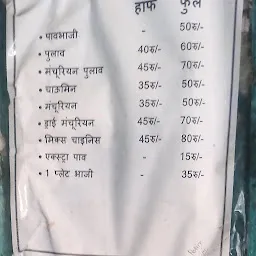 हाफ फुल
• पावभाजी - 50रु/-
• पुलाव 40रु/- 60रु/-
• मंचूरियन पुलाव 45रु/- 70रु/-
• चाऊमिन 35रु/- 50रु/-
• मंचूरियन 35रु/- 50रु/-
• ड्राई मंचूरियन 45रु/- 70रु/-
• मिक्स चाइनिस 45रु/- 80रु/-
• एक्स्ट्रा पाव - 15रु/-
• 1 प्लेट भाजी - 35रु/-